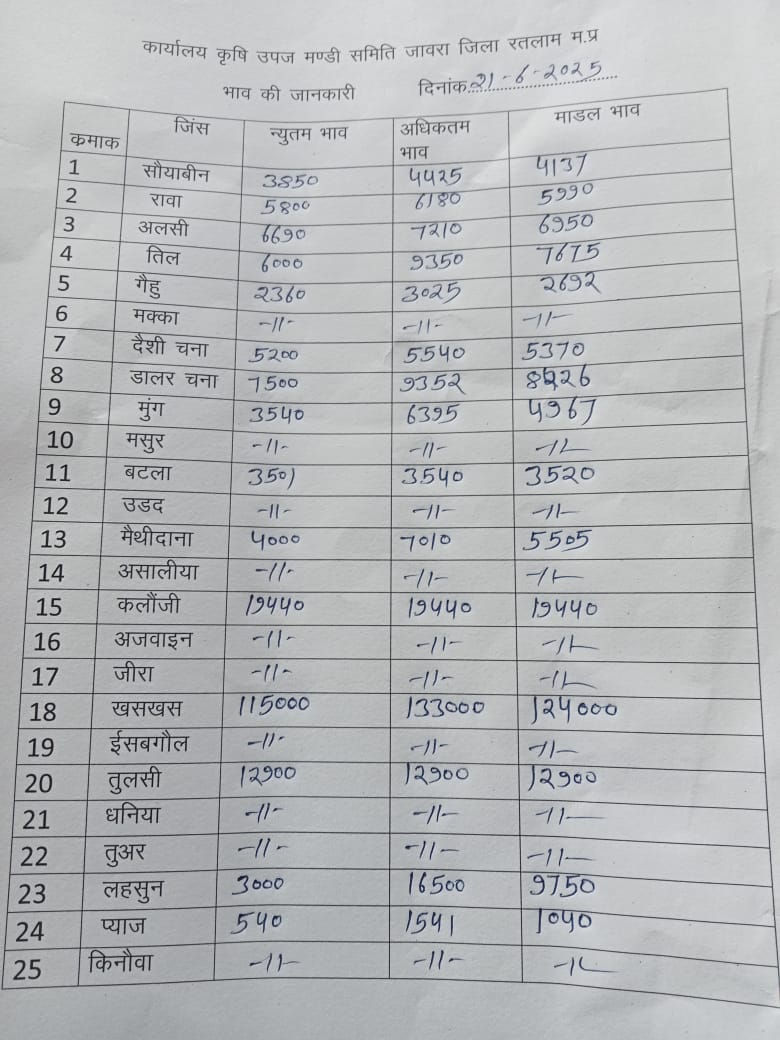 कार्यालय कृषि उपज मण्डी समिति जावरा जिला रतलाम म.प्र
भाव की जानकारी दिनांक 21-6-2025
कमाक जिंस न्युतम भाव अधिकतम भाव माडल भाव
1 सौयाबीन 3850 4425 4137
2 रावा 5800 6180 5990
3 अलसी 6690 7210 6950
4 तिल 6000 9350 7675
5 गैहु 2360 3025 2692
6 मक्का -11- -11- -11-
7 दैशी चना 5200 5540 5370
8 डालर चना 7500 9352
9 मुंग 3540 6395 4967
10 मसुर -11- -11- -11-
11 बटला 3501 3540 3520
12 उडद -11- -11- -11-
13 मैथीदाना 4000 7010 5505
14 असालीया -11- -11- -11-
15 कलौंजी 19440 19440 19440
16 अजवाइन -11- -11- -11-
17 जीरा -11- -11- -11-
18 खसखस 115000 133000 124000
19 ईसबगौल -11- -11- -11-
20 तुलसी 12900 12900 12900
21 धनिया -11- -11- -11-
22 तुअर -11- -11- -11-
23 लहसुन 3000 16500 9750
24 प्याज 540 1541 1040
25 किनौवा -11- -11- -11-